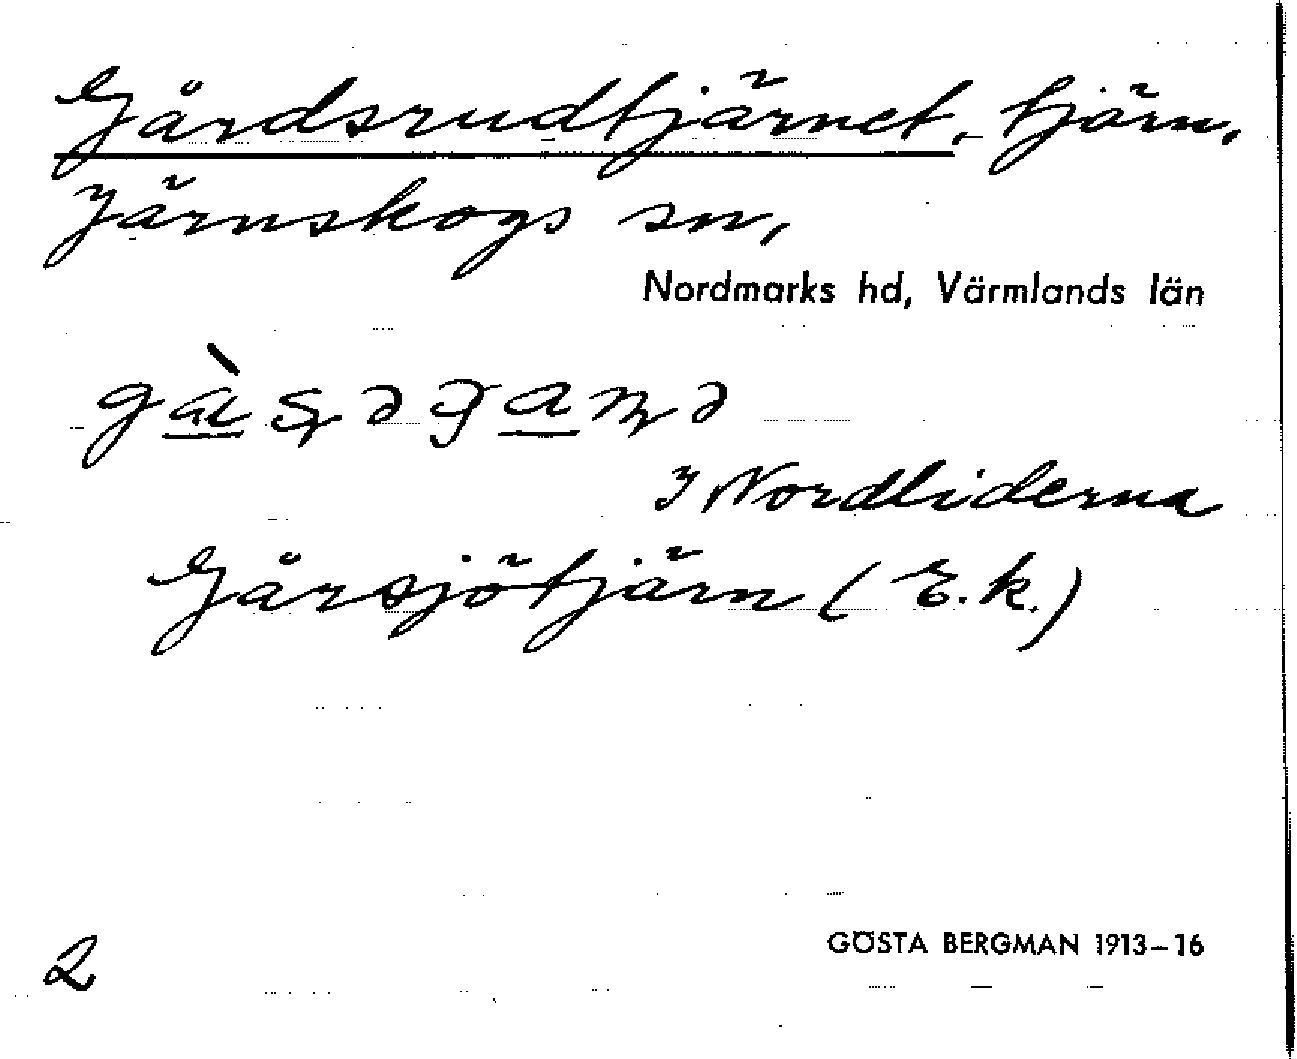 Gårdsrudtjärnet, tjärn,
Järnskogs sn,
Nordmarks hd, Värmlands län
I Nordliderna
Gårsjötjärn (E.k.)
GÖSTA BERGMAN 1913–16
2